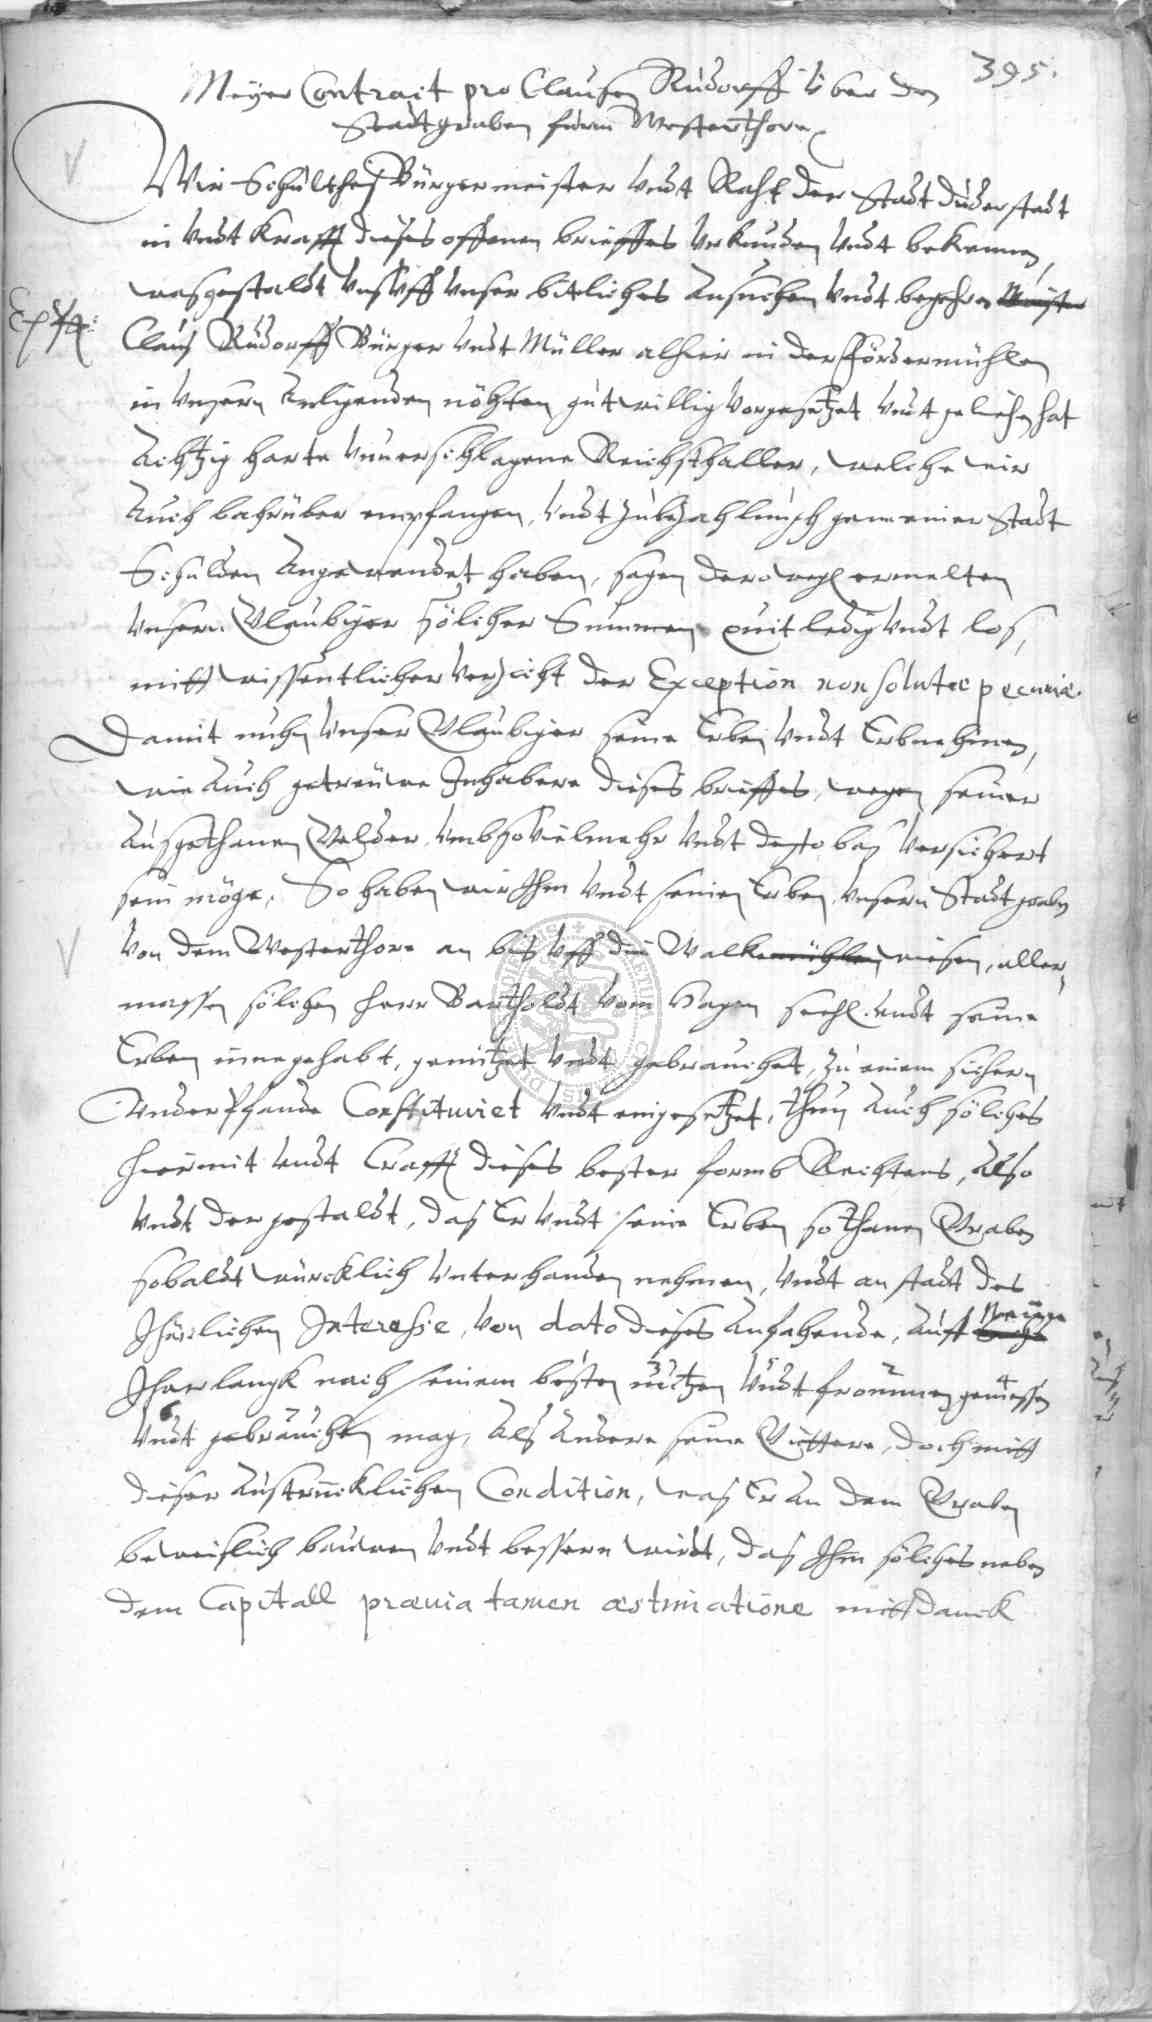 395.
Meyer Contract pro Clausen Rudorff über den
Stadtgraben fürm Westerthore
Wir Schultheß Bürgermeister Vndt Raht der Stadt Duderstadt
in Vndt Krafft dieses offenen brieffes Vrkunden Vndt bekennen,
wasgestaldt Vns Vff Vnser bitliches Ansuchen Vndt begehren Meister
Claus Rudorff Bürger Vndt Müller alhier in der Fördermühlen
in Vnsern Anligenden nöhten gutwillig Vorgesetzet Vndt geliehen hat
Achtzig harte Vnuerschlagene Reichsthaller, welche wir
Auch bahrüber empfangen, Vndt zubezahlung gemeiner Stadt
Schulden Angewendet haben, sagen derowegen ermelten
Vnsern Glaubiger sölicher Summen quit ledig Vndt los,
mitt wissentlicher Verzicht der Exception non solutæ pecuniæ.
Damit nuhn Vnser Glaubiger seine Erben Vndt Erbnehmen,
wie Auch getreuwe Inhabere dieses brieffes, wegen seiner
Ausgethanen Gelder, Vmb so Vielmehr Vndt desto bas Versichert
sein möge, So haben wir Ihm Vndt seinen Erben Vnsern Stadtgraben
Von dem Westerthore an bis Vff die Walkemühlen wiesen, aller¬
massen sölichen Herr Bartholdt Vom Hagen seehl. Vndt seine
Erben innegehabt, genützet Vndt gebrauchet, zu einem sichern
Vnderpfande Constituiret Vndt eingesetzet, thun Auch söliches
hiermit Vndt Crafft dieses bester formb Rechtens, Also
Vndt dergestaldt, das Er Vndt seine Erben sothanen Graben
sobaldt würcklich Vnterhanden nehmen, Vndt an stadt des
Jhärlichen Interesse, Von dato dieses Anfahende, Auff Neune
Jhar langk nach seinem besten nützen Vndt frommen geniessen
Vndt gebrauchen mag, Als Andere seine Güttere, doch mitt
dieser Austrücklichen Condition, was Er An dem Graben
beweislich bauwen Vndt bessern wirdt, das Ihm söliches neben
dem Capitall præuia tamen æstimatione mitt Danck